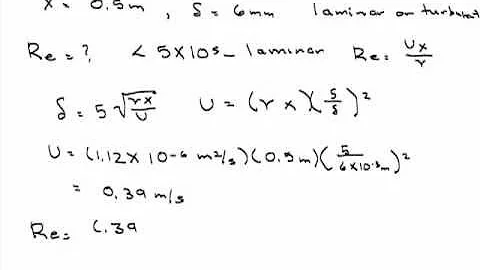 x = 0.5m , δ = 6mm laminar or turbulent
Re = ? < 5×10⁵ – laminar Re = Ux/γ
δ = 5 √(γx/U) U = (γ x)(5/δ)²
U = (1.12 × 10-6 m²/s)(0.5m)(5/6×10-3m)²
= 0.39 m/s
Re = (.39